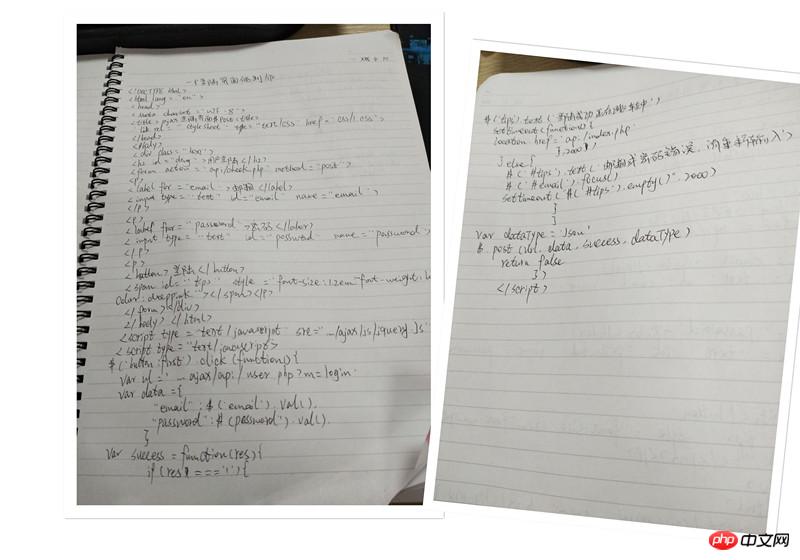 一个登陆页面
<!DOCTYPE html>
<html lang="en">
<head>
<meta charset="UTF-8">
<title>
登陆页面 post<title>
link rel="stylesheet" type="text/css" href="css/1.css">
</head>
<body>
<div class="box">
<h2 id="deng">用户登陆</h2>
<form action="api/check.php" method="post">
<p>
<label for="email">邮箱</label>
<input type="text" id="email" name="email">
</p>
<p>
<label for="password">密码</label>
<input type="text" id="password" name="password">
</p>
<p>
<button>登陆</button>
<span id="tips" style="font-size:1.2em font-weight:
color:deeppink"></span></p>
</form></div>
</body></html>
<script type="text/javascript" src="../ajax/js/jquery.js"
<script type="text/javascript>
$('button:first').click(function(){
var url='../ajax/api/user.php?m=login'
var data={
"email":$('email').val(),
"password":$(password").val(),
}
var success=function(res){
if(res ==='1'){
$('tips').text('邮箱成功
setTimeout(function(){
location.href='api/index.php'
},2000)
}else{
$('#tips').text('邮箱或密码错误,请重新输入')
$('#email').focus()
setTimeout("$('#tips').empty()",2000)
}
}
var dataType='Json'
$.post(url,data,success,dataType)
return false
})
</script>
php 中文网